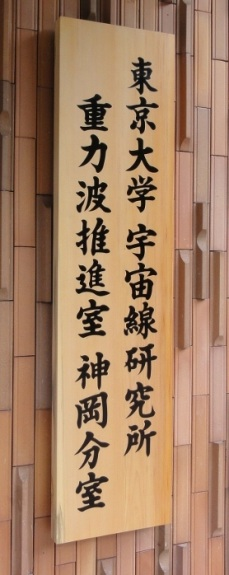 東京大学 宇宙線研究所
重力波推進室 神岡分室